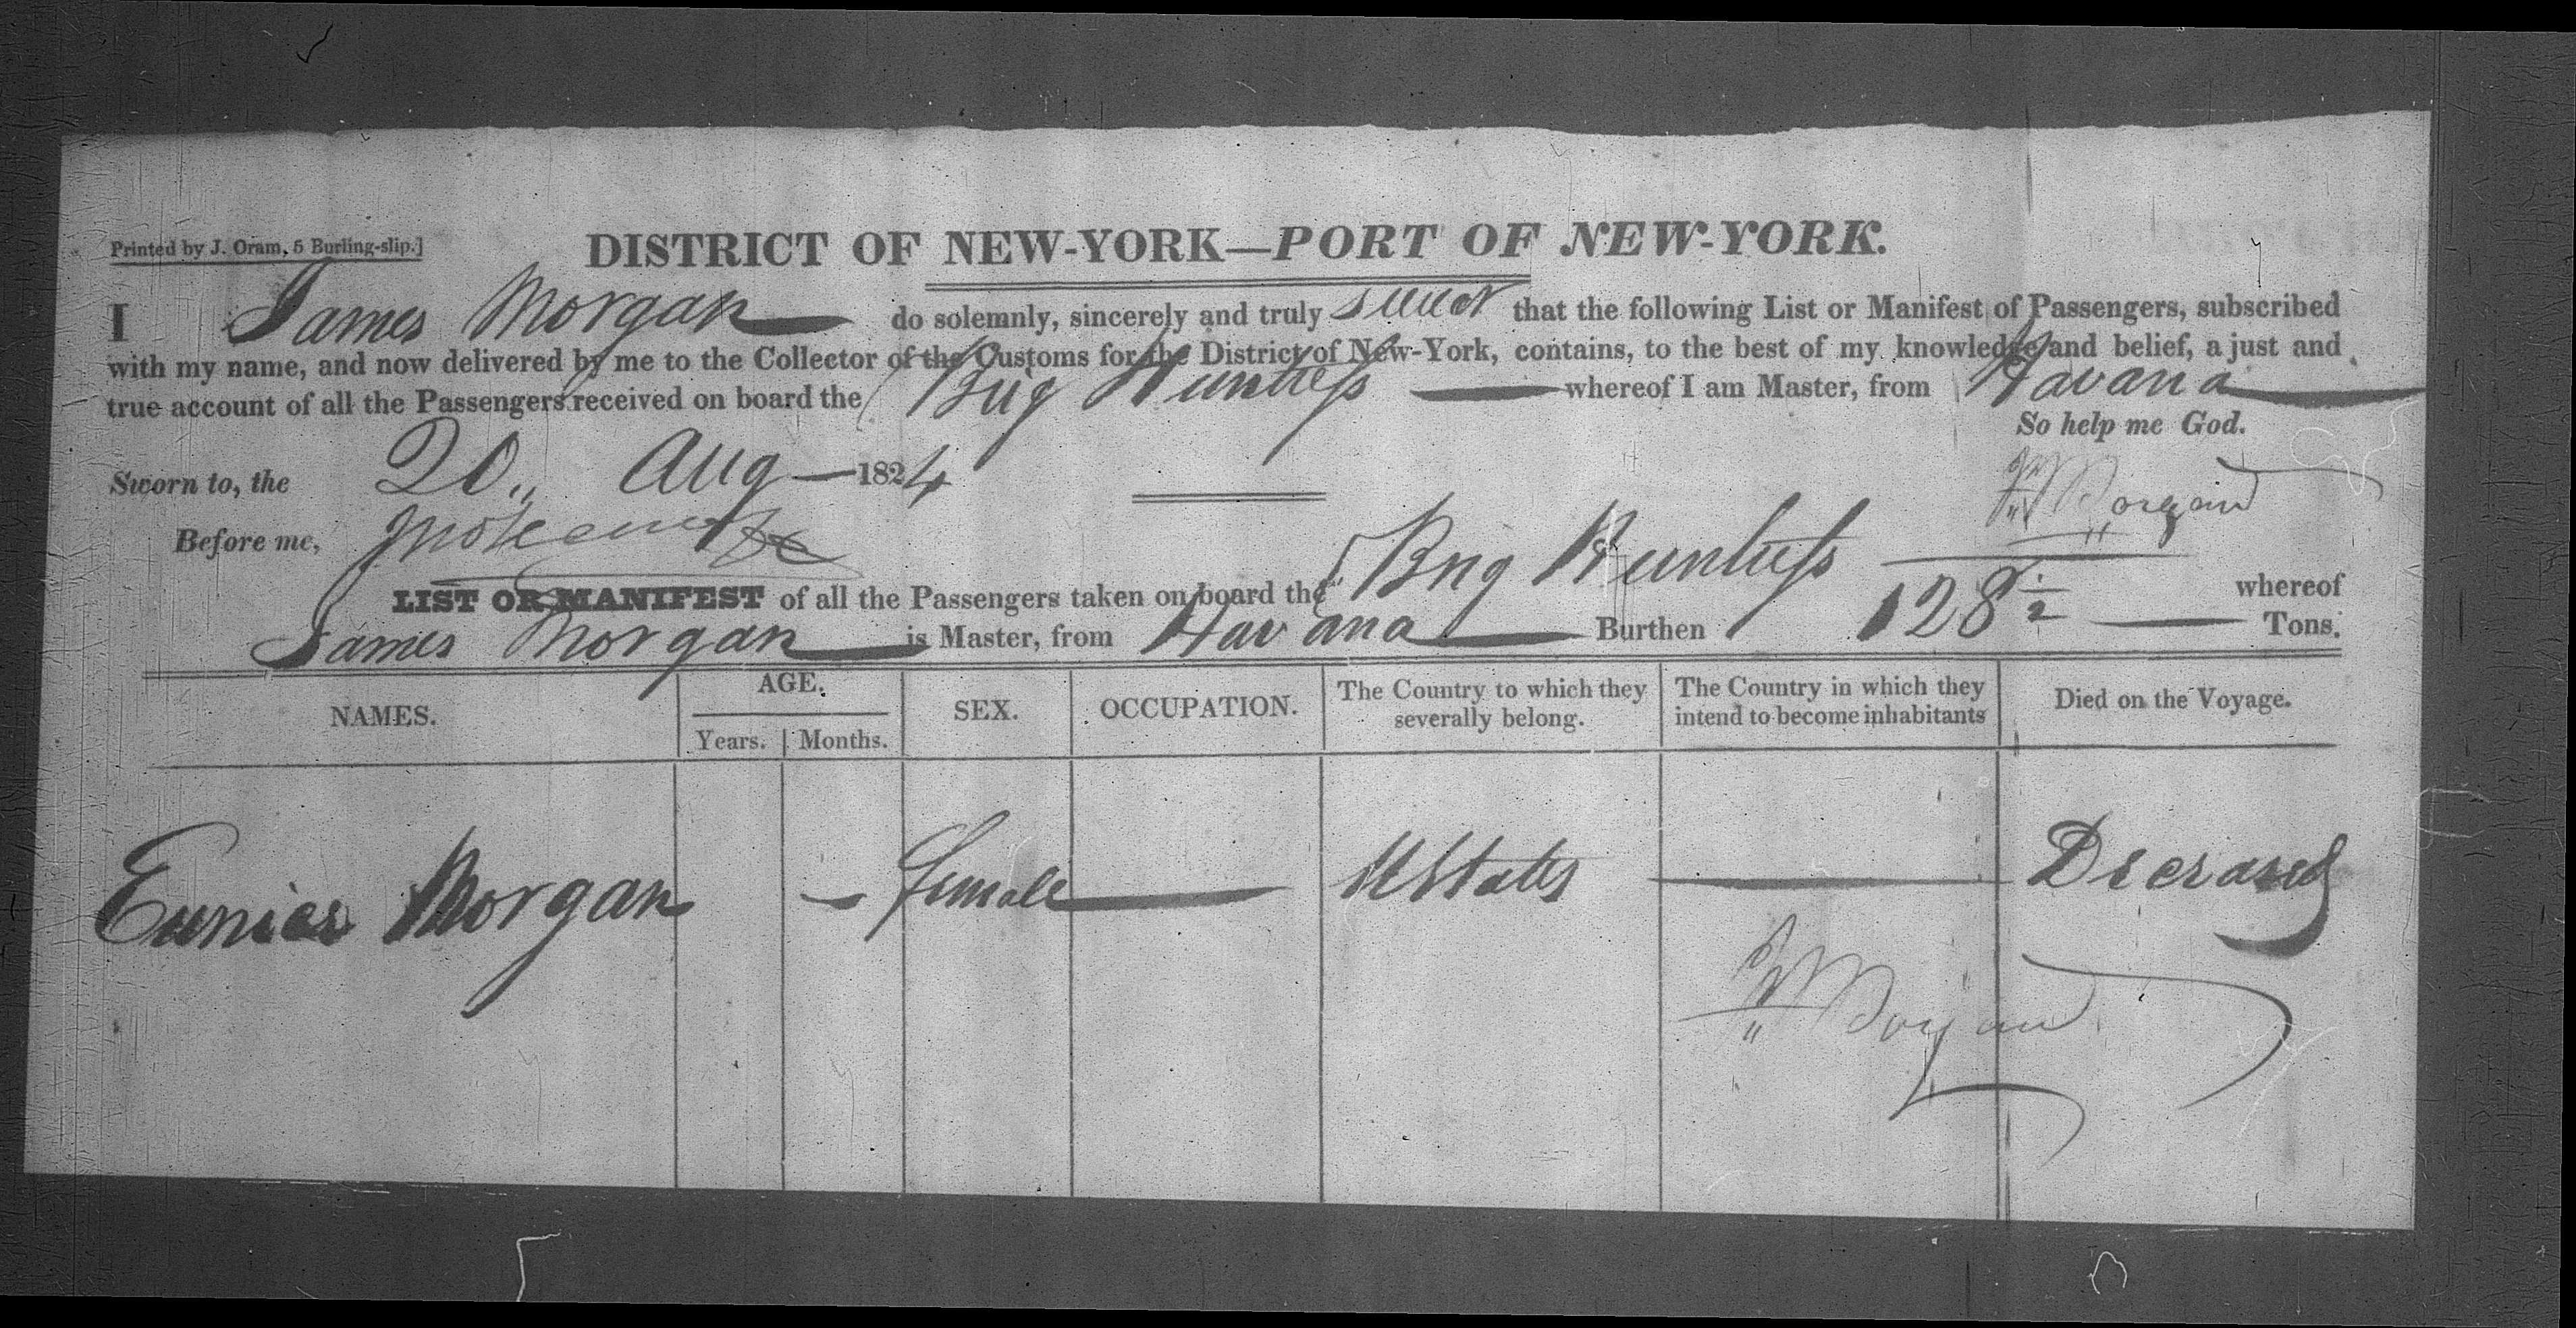 DISTRICT OF NEW-YORK—PORT OF NEW-YORK.
Printed by J. Oram, 5 Burling-slip.]
I James Morgan do solemnly, sincerely and truly swear that the following List or Manifest of Passengers, subscribed
with my name, and now delivered by me to the Collector of the Customs for the District of New-York, contains, to the best of my knowledge and belief, a just and
true account of all the Passengers received on board the Brig Huntess whereof I am Master, from Havana
So help me God.
Sworn to, the 20 Aug 1824
Morgan
Before me,
LIST OR MANIFEST of all the Passengers taken on board the Brig Huntess whereof
James Morgan is Master, from Havana Burthen 128 1/2 Tons.
NAMES. AGE. SEX. OCCUPATION. The Country to which they severally belong. The Country in which they intend to become inhabitants Died on the Voyage.
Years. Months.
Eunice Morgan — female — UStates — Deceased
Morgan